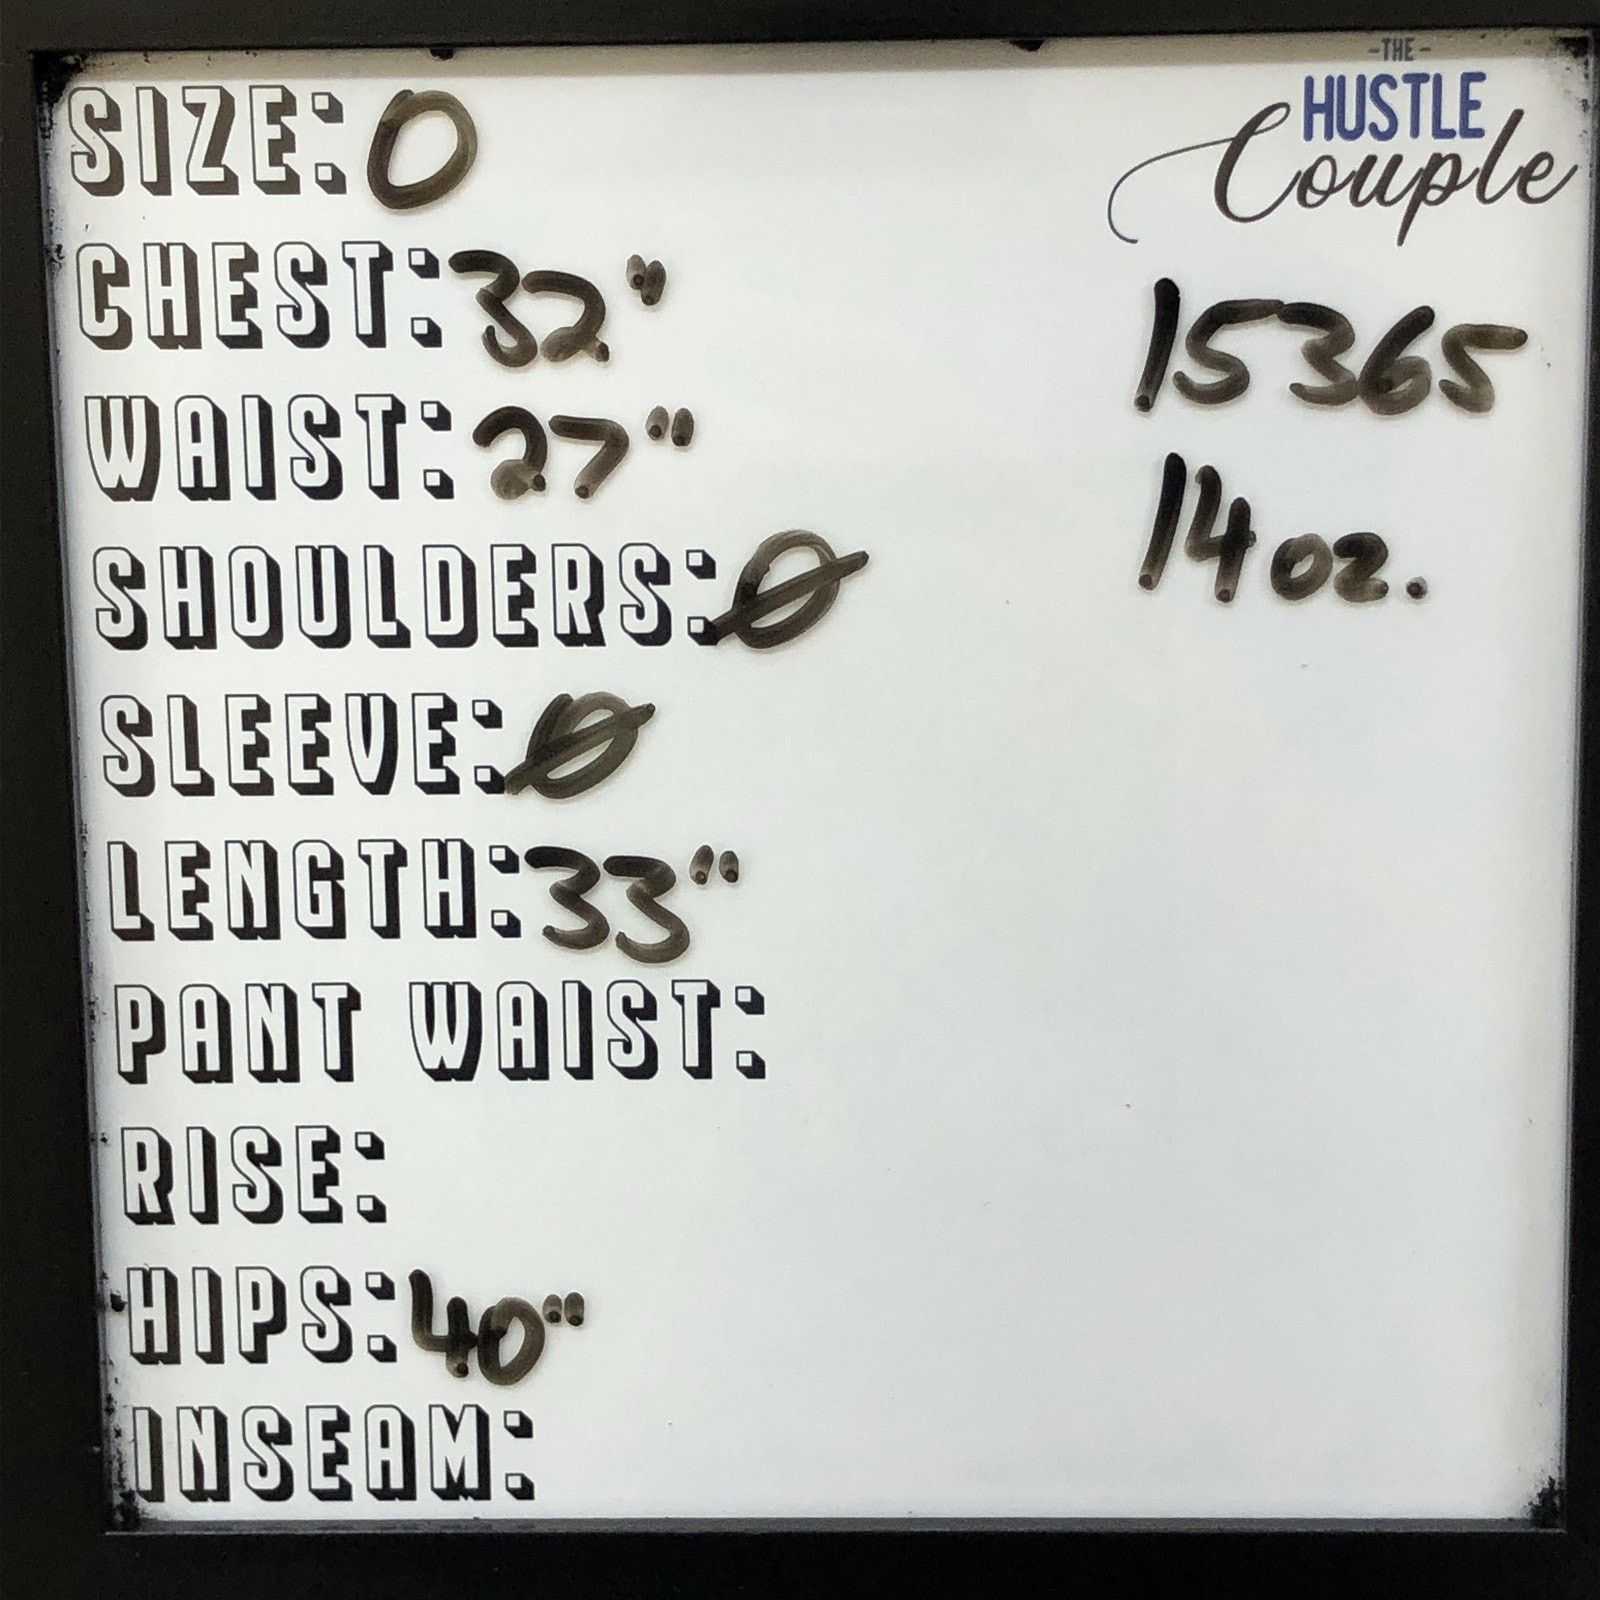 -THE-
HUSTLE
Couple
SIZE: 0
CHEST: 32"
WAIST: 27"
SHOULDERS: Ø
SLEEVE: Ø
LENGTH: 33"
PANT WAIST:
RISE:
HIPS: 40"
INSEAM:
15365
14 oz.